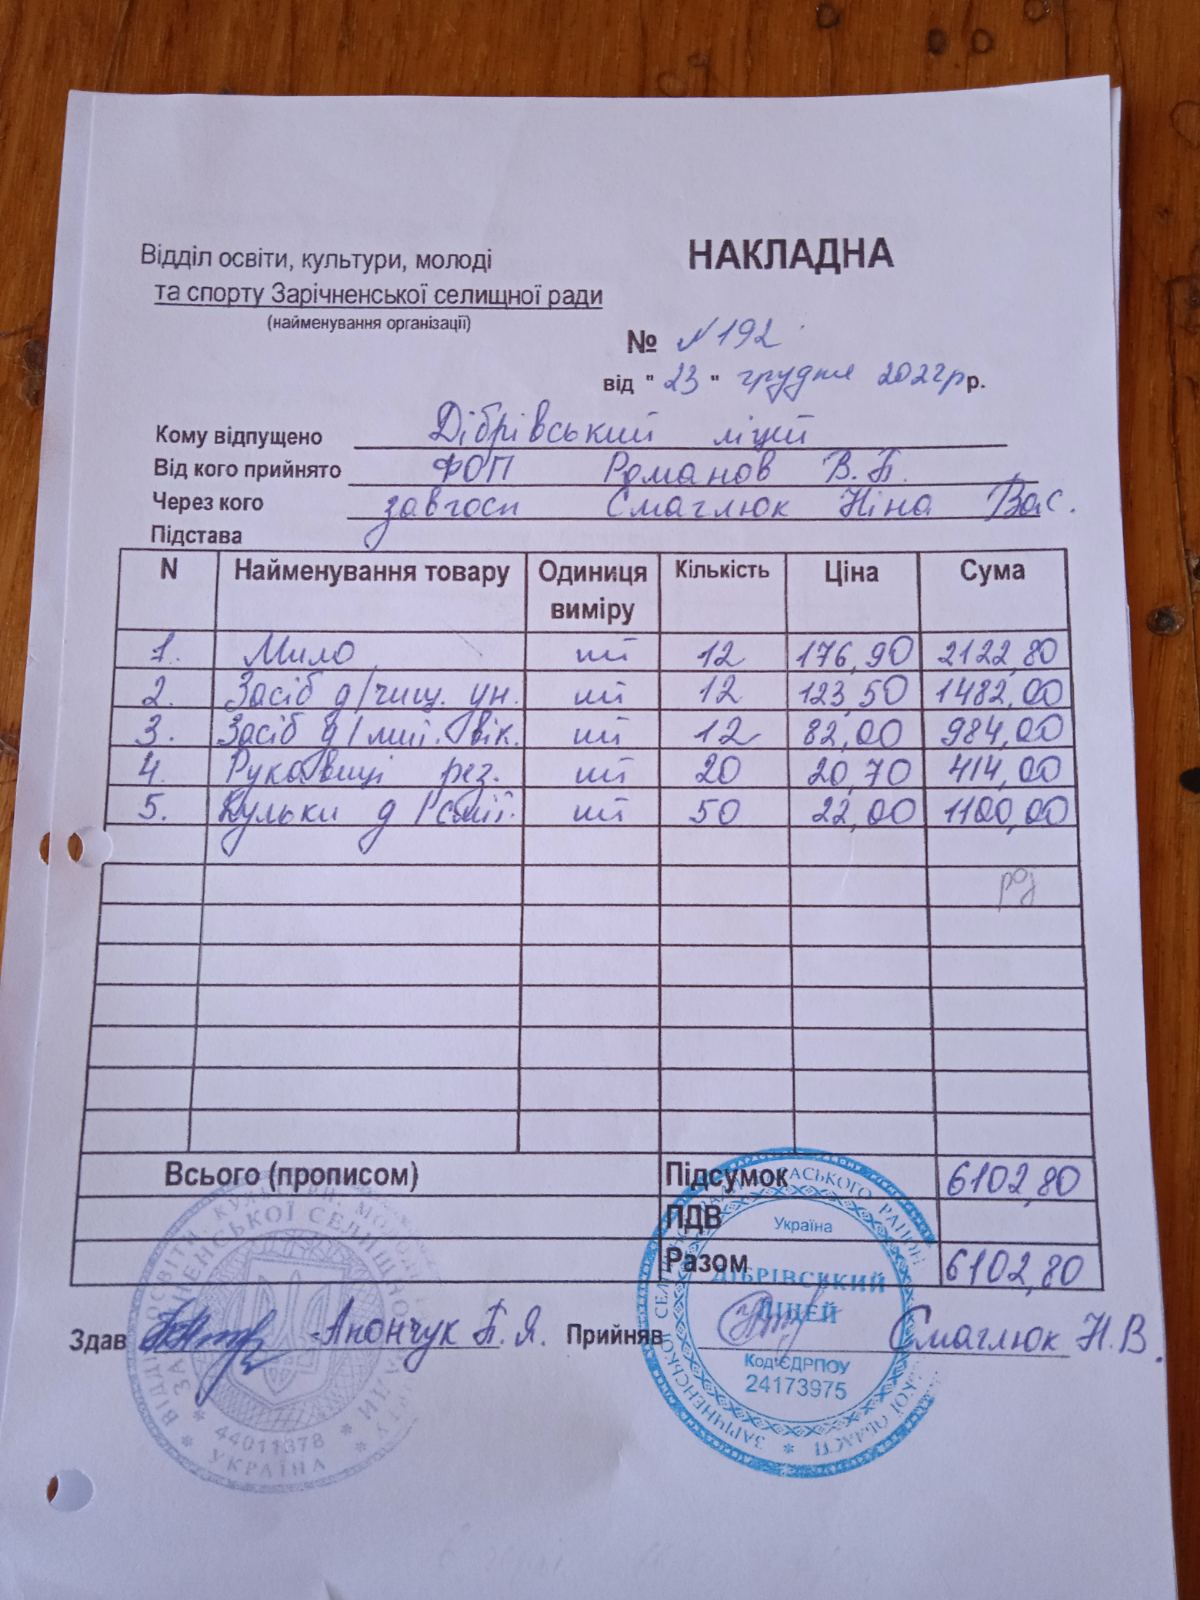 Відділ освіти, культури, молоді
та спорту Зарічненської селищної ради
(найменування організації)
НАКЛАДНА
№ N192
від " 23 " грудня р.
Кому відпущено Дібрівський ліцей
Від кого прийнято ФОП Романов В.Б.
Через кого завгосп Смаглюк Ніна Вас.
Підстава
N Найменування товару Одиниця виміру Кількість Ціна Сума
1. Мило шт 12 176,90 2122,80
2. Засіб д/чищ. ун. шт 12 123,50 1482,00
3. Засіб д/миї. вік. шт 12 82,00 984,00
4. Рукавиці рез. шт 20 20,70 414,00
5. Кульки д/смії. шт 50 22,00 1100,00
Всього (прописом) Підсумок 6102,80
ПДВ
Разом 6102,80
Здав Апончук Б.Я. Прийняв Смаглюк Н.В.
ЗАРІЧНЕНСЬКОЇ СЕЛИЩНОЇ РАДИ
44011378
УКРАЇНА
Україна
ДІБРІВСЬКИЙ
ЛІЦЕЙ
Код ЄДРПОУ
24173975